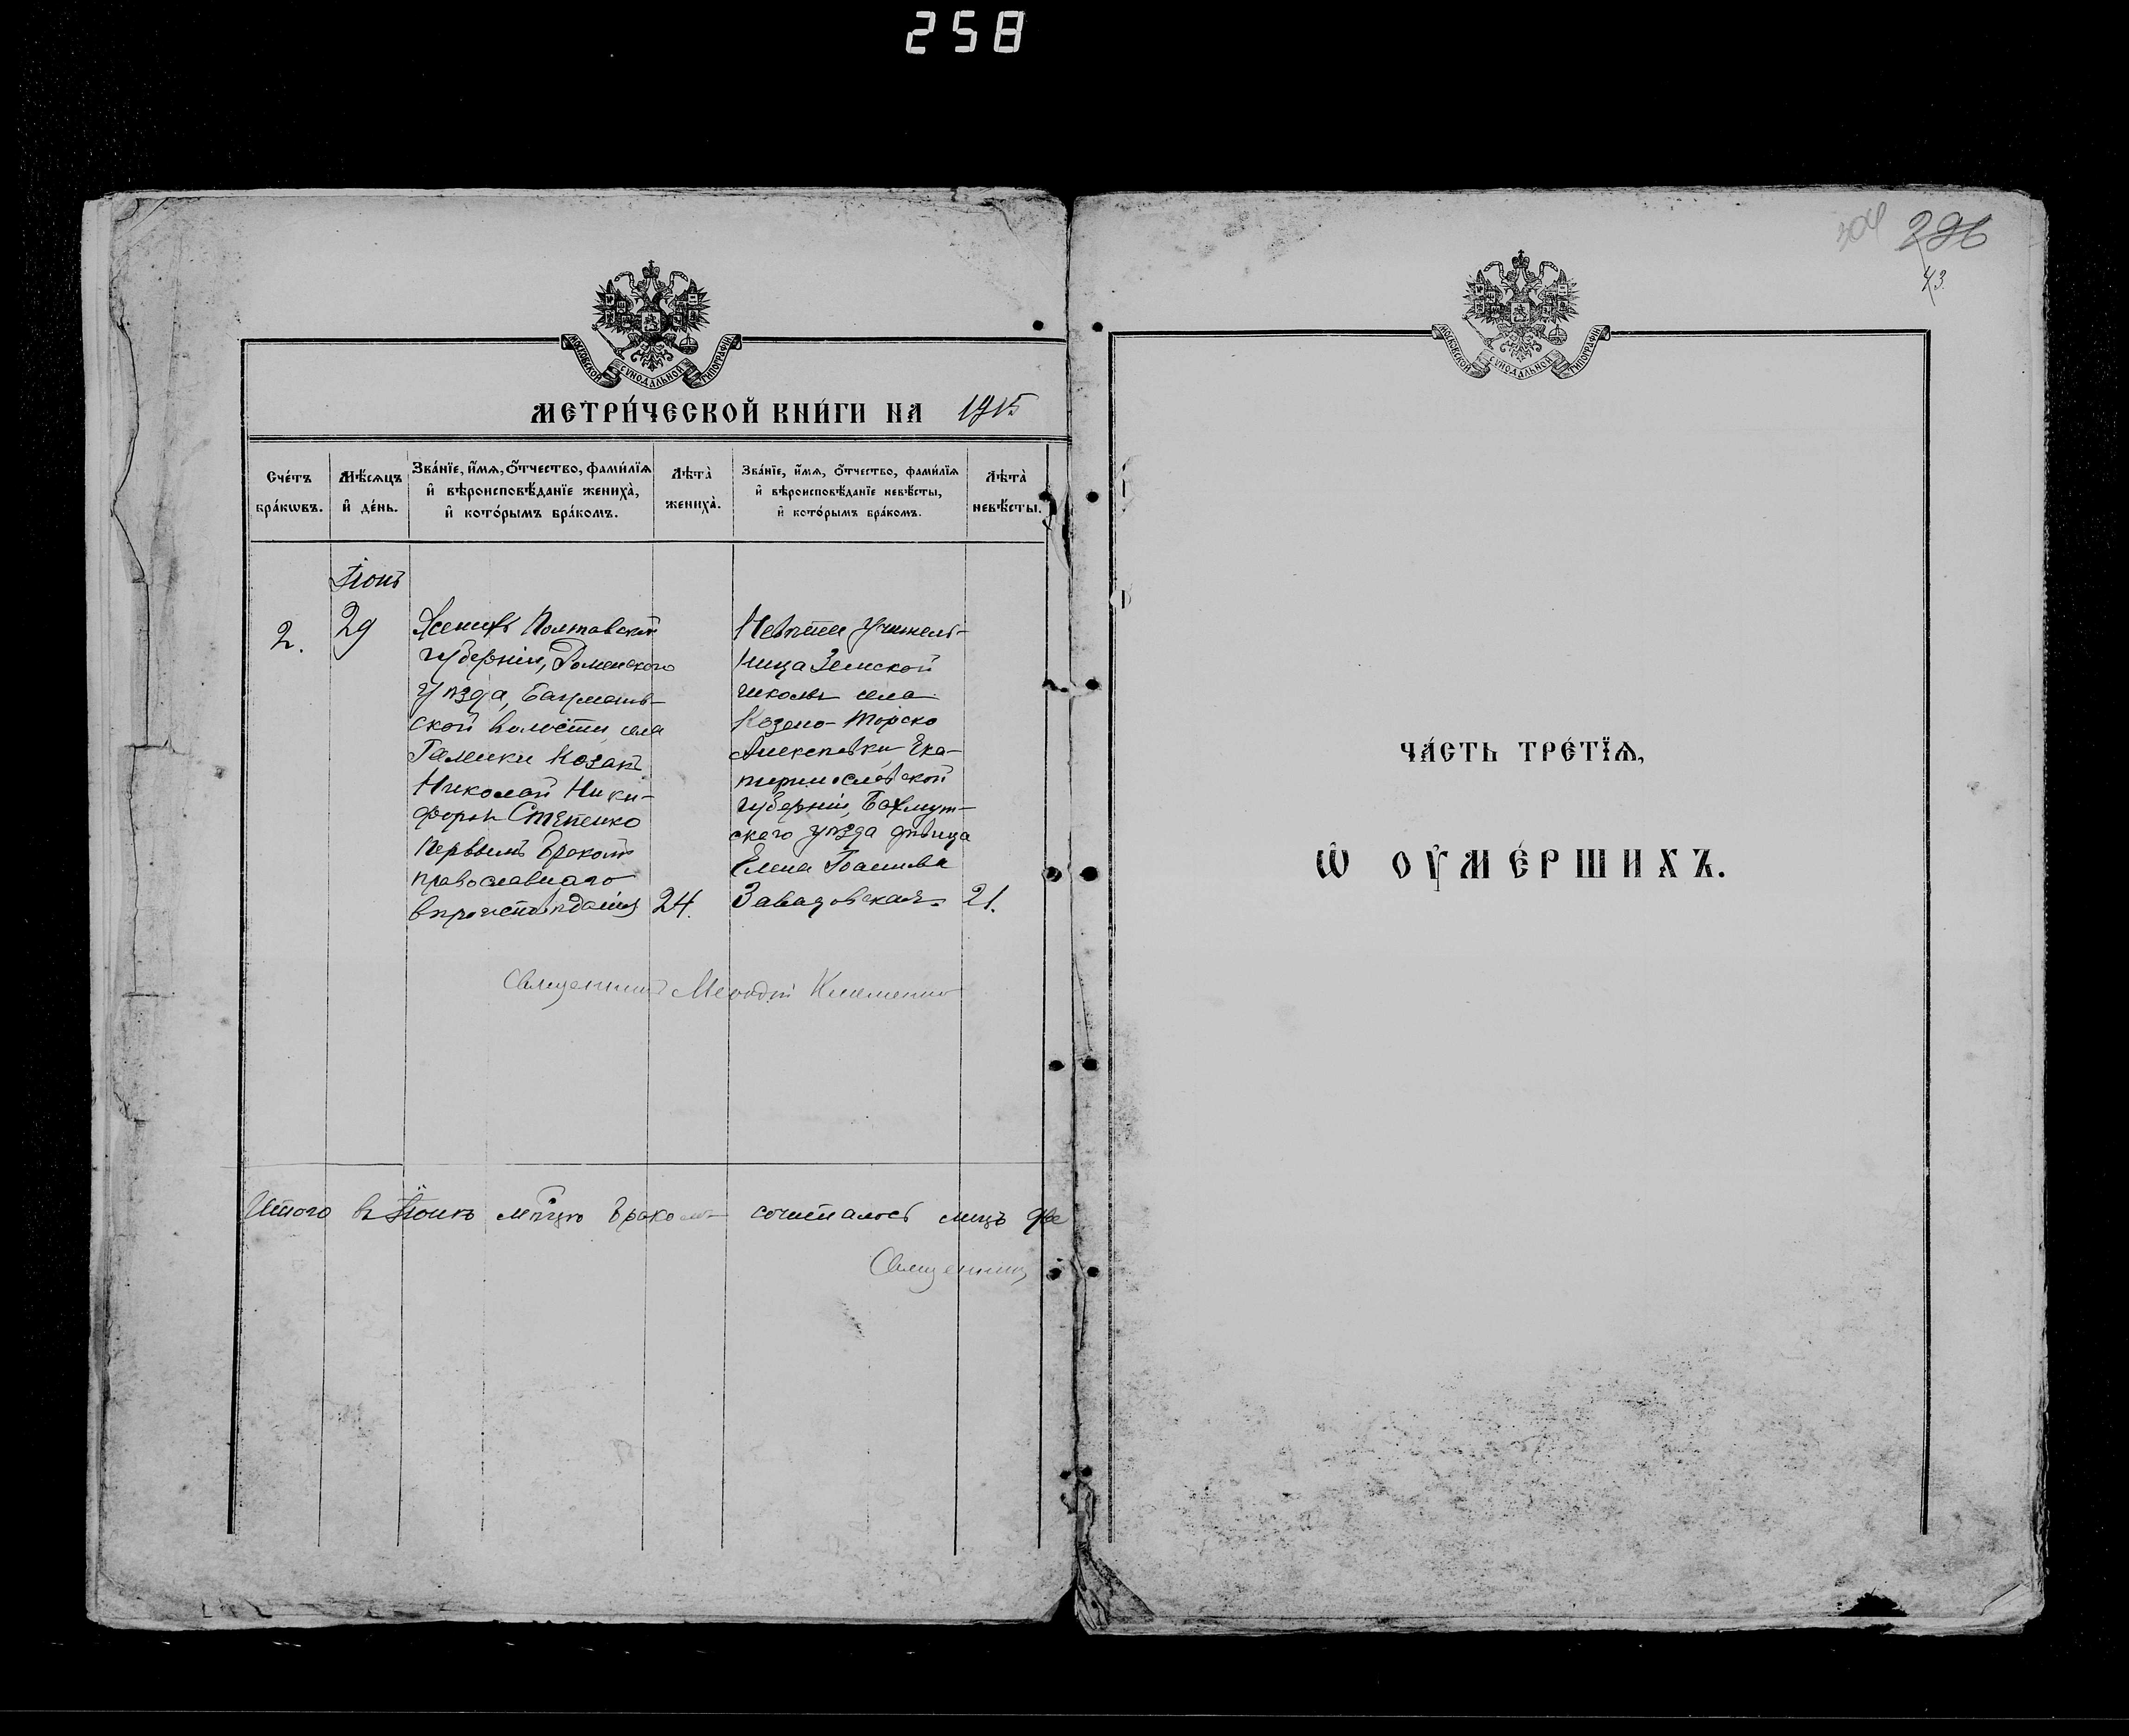 258
МОСКОВСКОЙ СѴНОДАЛЬНОЙ ТИПОГРАФІИ
МЕТРИ́ЧЕСКОЙ КНИ́ГИ НА 1915
Сче́тъ бра́кѡвъ.
Мѣ́сяцъ и҆ де́нь.
Зва́нїе, и҆́мѧ, ѻ҆́тчество, фами́лїѧ
и҆ вѣроисповѣ́данїе жениха̀,
и҆ кото́рымъ бра́комъ.
Лѣта̀ жениха̀.
Зва́нїе, и҆́мѧ, ѻ҆́тчество, фами́лїѧ
и҆ вѣроисповѣ́данїе невѣ́сты,
и҆ кото́рымъ бра́комъ.
Лѣта̀ невѣ́сты.
Іюнь
2.
29
Женихъ Полтавской
губерніи, Роменскаго
уѣзда,
ской волости села
Галенки Козакъ
Николай Ники-
форовъ Степенко
первымъ бракомъ
православнаго
вѣроисповѣданія
24.
Невѣста учитель-
ница Земской
школы села
Казено-Торско
Алексѣевки Ека-
теринославской
губерніи, Бахмут-
скаго уѣзда дѣвица
Елена Іоаннова
Завадовская.
21.
Священникъ Меѳодій Клименко
Итого въ Іюнѣ мѣсяцѣ бракомъ сочеталось лицъ две
Священникъ
304 296
43.
МОСКОВСКОЙ СѴНОДАЛЬНОЙ ТИПОГРАФІИ
ЧА́СТЬ ТРЕ́ТЇѦ,
Ѡ҆ ОУ҆МЕ́РШИХЪ.